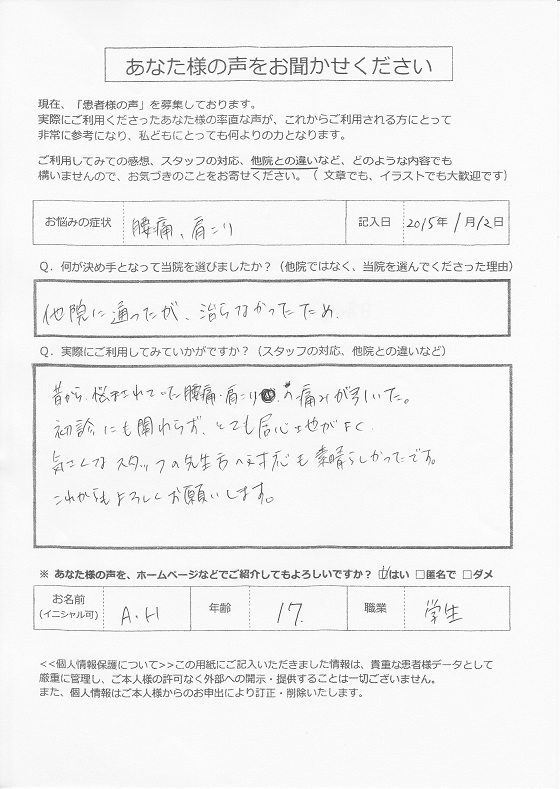 あなた様の声をお聞かせください
現在、「患者様の声」を募集しております。
実際にご利用くださったあなた様の率直な声が、これからご利用される方にとって
非常に参考になり、私どもにとっても何よりの力となります。
ご利用してみての感想、スタッフの対応、他院との違いなど、どのような内容でも
構いませんので、お気づきのことをお寄せください。（ 文章でも、イラストでも大歓迎です）
お悩みの症状 腰痛、肩こり 記入日 2015年 1月12日
Q．何が決め手となって当院を選びましたか？（他院ではなく、当院を選んでくださった理由）
他院に通ったが、治らなかったため、
Q．実際にご利用してみていかがですか？（スタッフの対応、他院との違いなど）
昔から悩まされていた腰痛・肩こり の痛みが引いた。
初診にも関わらず、とても居心地がよく
気さくなスタッフの先生方の対応も素晴らしかったです。
これからもよろしくお願いします。
※ あなた様の声を、ホームページなどでご紹介してもよろしいですか？ ☑はい □匿名で □ダメ
お名前
(イニシャル可) A.H 年齢 17. 職業 学生
<<個人情報保護について>>この用紙にご記入いただきました情報は、貴重な患者様データとして
厳重に管理し、ご本人様の許可なく外部への開示・提供することは一切ございません。
また、個人情報はご本人様からのお申出により訂正・削除いたします。